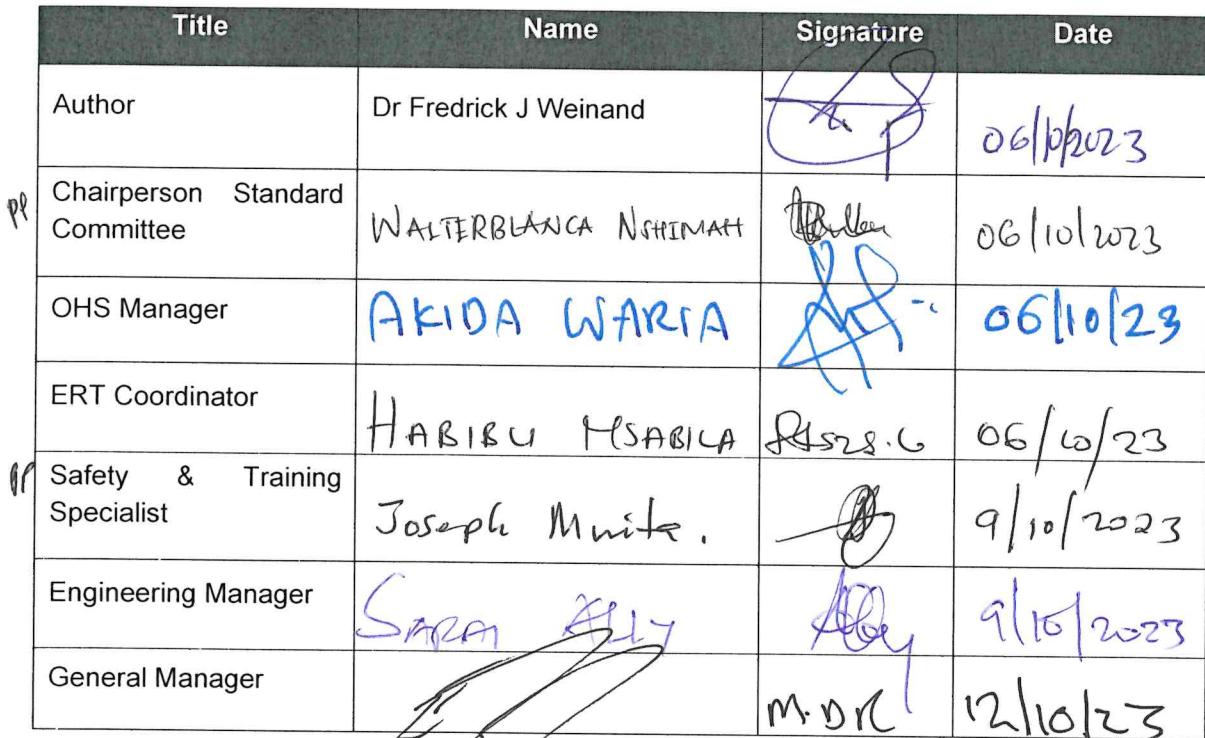 Title Name Signature Date
Author Dr Fredrick J Weinand 06/10/2023
pp Chairperson Standard
Committee WALTERBLANCA NSHIMAH 06/10/2023
OHS Manager AKIDA WARIA 06/10/23
ERT Coordinator HABIBU MSABILA 06/10/23
pp Safety & Training
Specialist Joseph Mwita. 9/10/2023
Engineering Manager ALLY 9/10/2023
General Manager M.DR 12/10/23